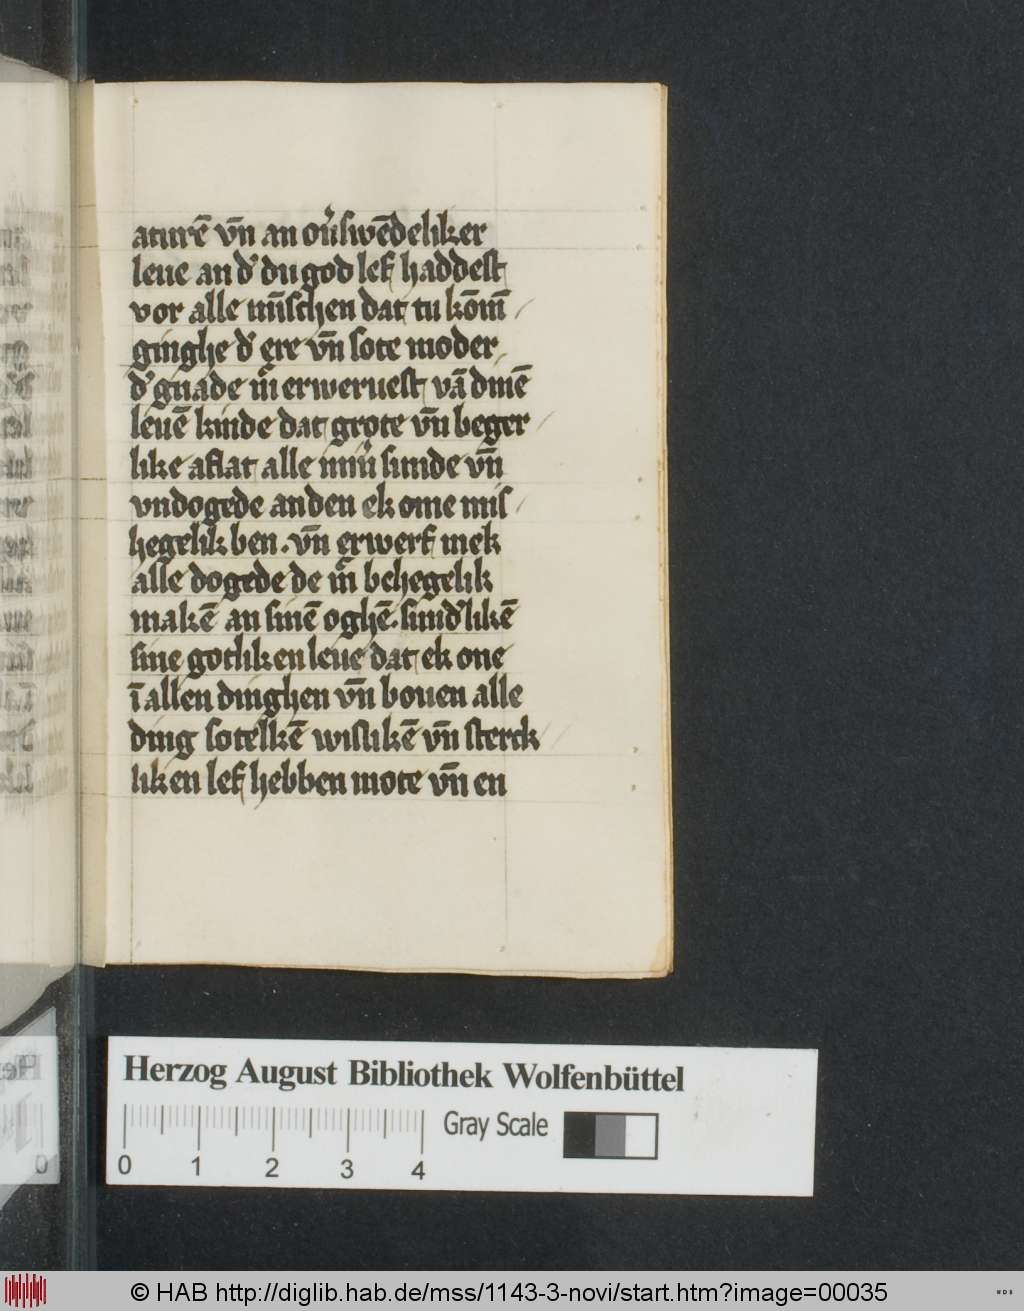 aturē vn̄ an ou᷑swēdeliker
leue an dʼ du god lef haddest
vor alle mn̄schen dat tu kōm̄
ginghe dʼ ere vn̄ sote moder
dʼ gnade m᷑ erweruest vā dinē
leuē kinde dat grote vn̄ beger
like aflat alle sunde vn̄
vndogede an den ek ome mis
hegelik ben. vn̄ erwerf mek
alle dogede de m᷑ behegelik
makē an sinē oghē. sundʼlikē
sine gotliken leue dat ek one
ī allen dinghen vn̄ bouen alle
ding sotelkē wislikē vn̄ sterck
liken lef hebben mote vn̄ en
Herzog August Bibliothek Wolfenbüttel
Gray Scale
0 1 2 3 4
© HAB http://diglib.hab.de/mss/1143-3-novi/start.htm?image=00035